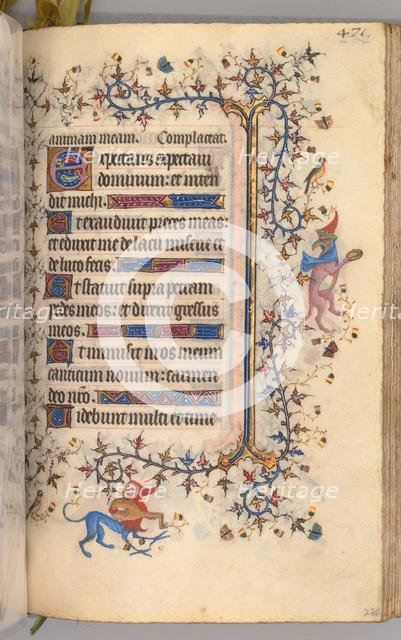 471.
animam meam. Complaceat.
Expectans expectavi
dominum: et inten
dit michi.
Et exaudivit preces meas:
et eduxit me de lacu miserie et
de luto fecis.
Et statuit supra petram
pedes meos: et direxit gressus
meos.
Et inmisit in os meum
canticum novum: carmen
deo nro.
Videbunt multi et time
Heritage
Heritage
Heritage
Heritage
Heritage
Heritage